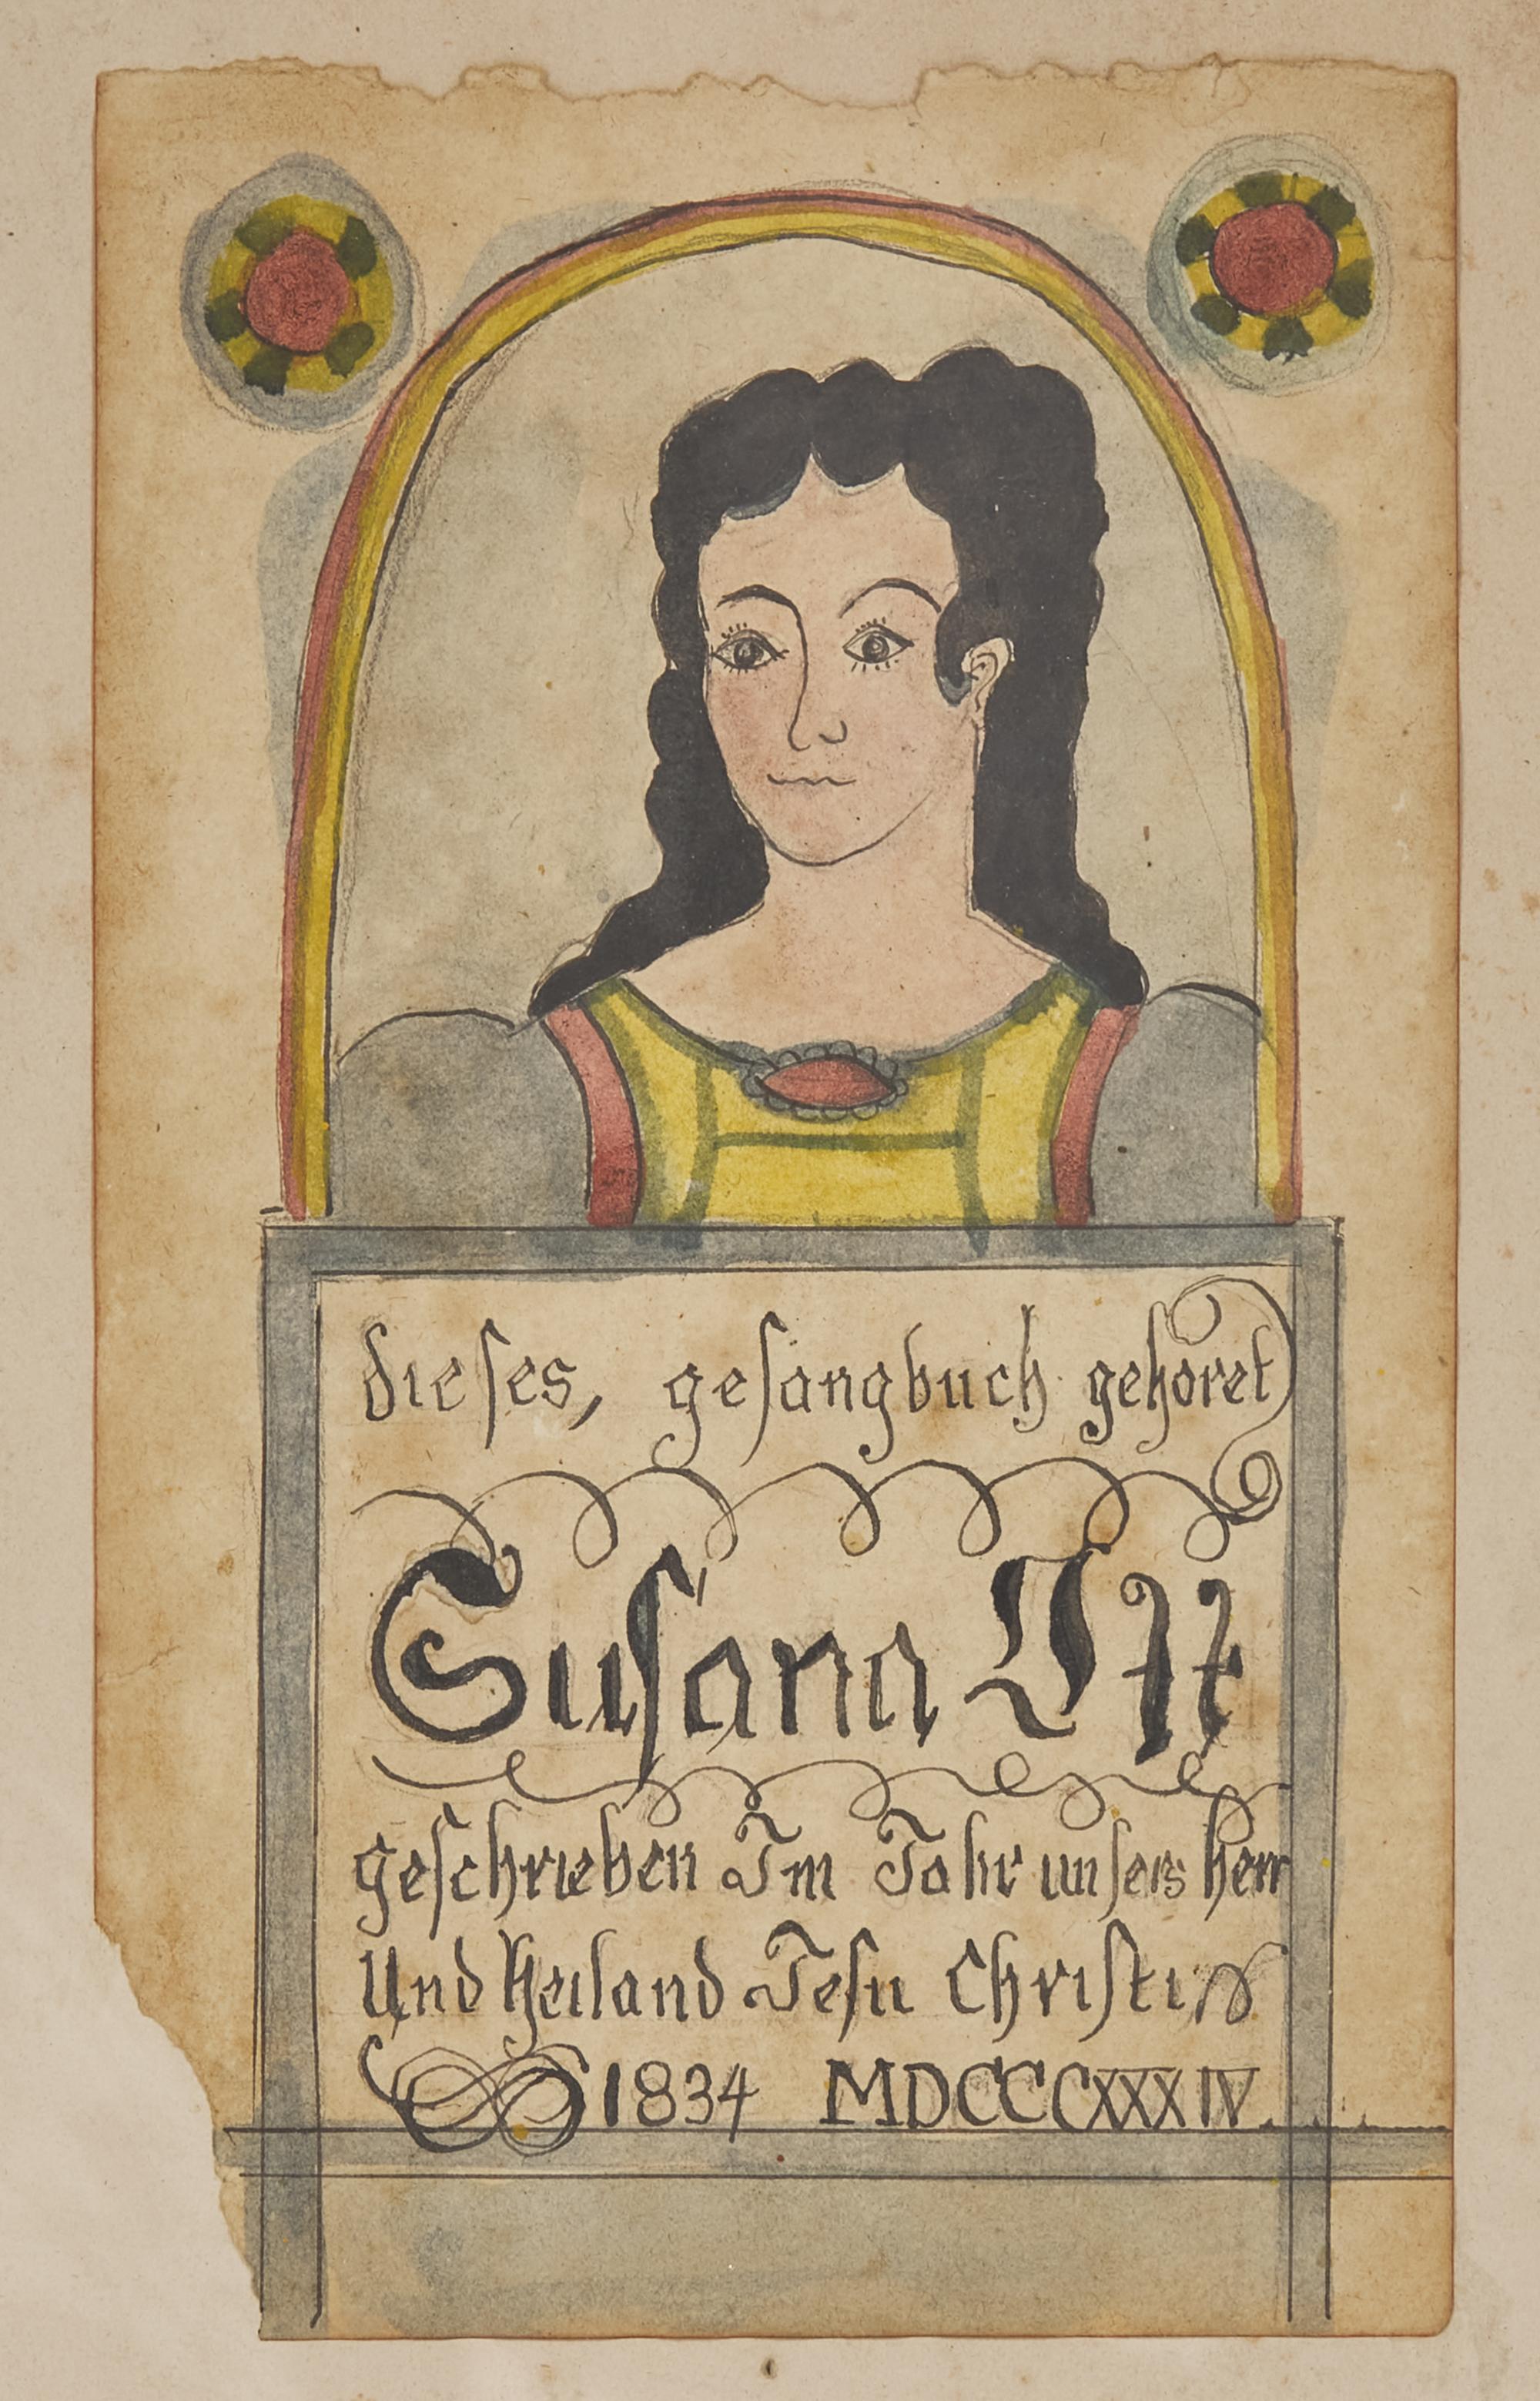 dieses, gesangbuch gehöret
Susana
geschrieben Im Jahr unsers herr
Und Heiland Jesu Christi
1834 MDCCCCXXXIV